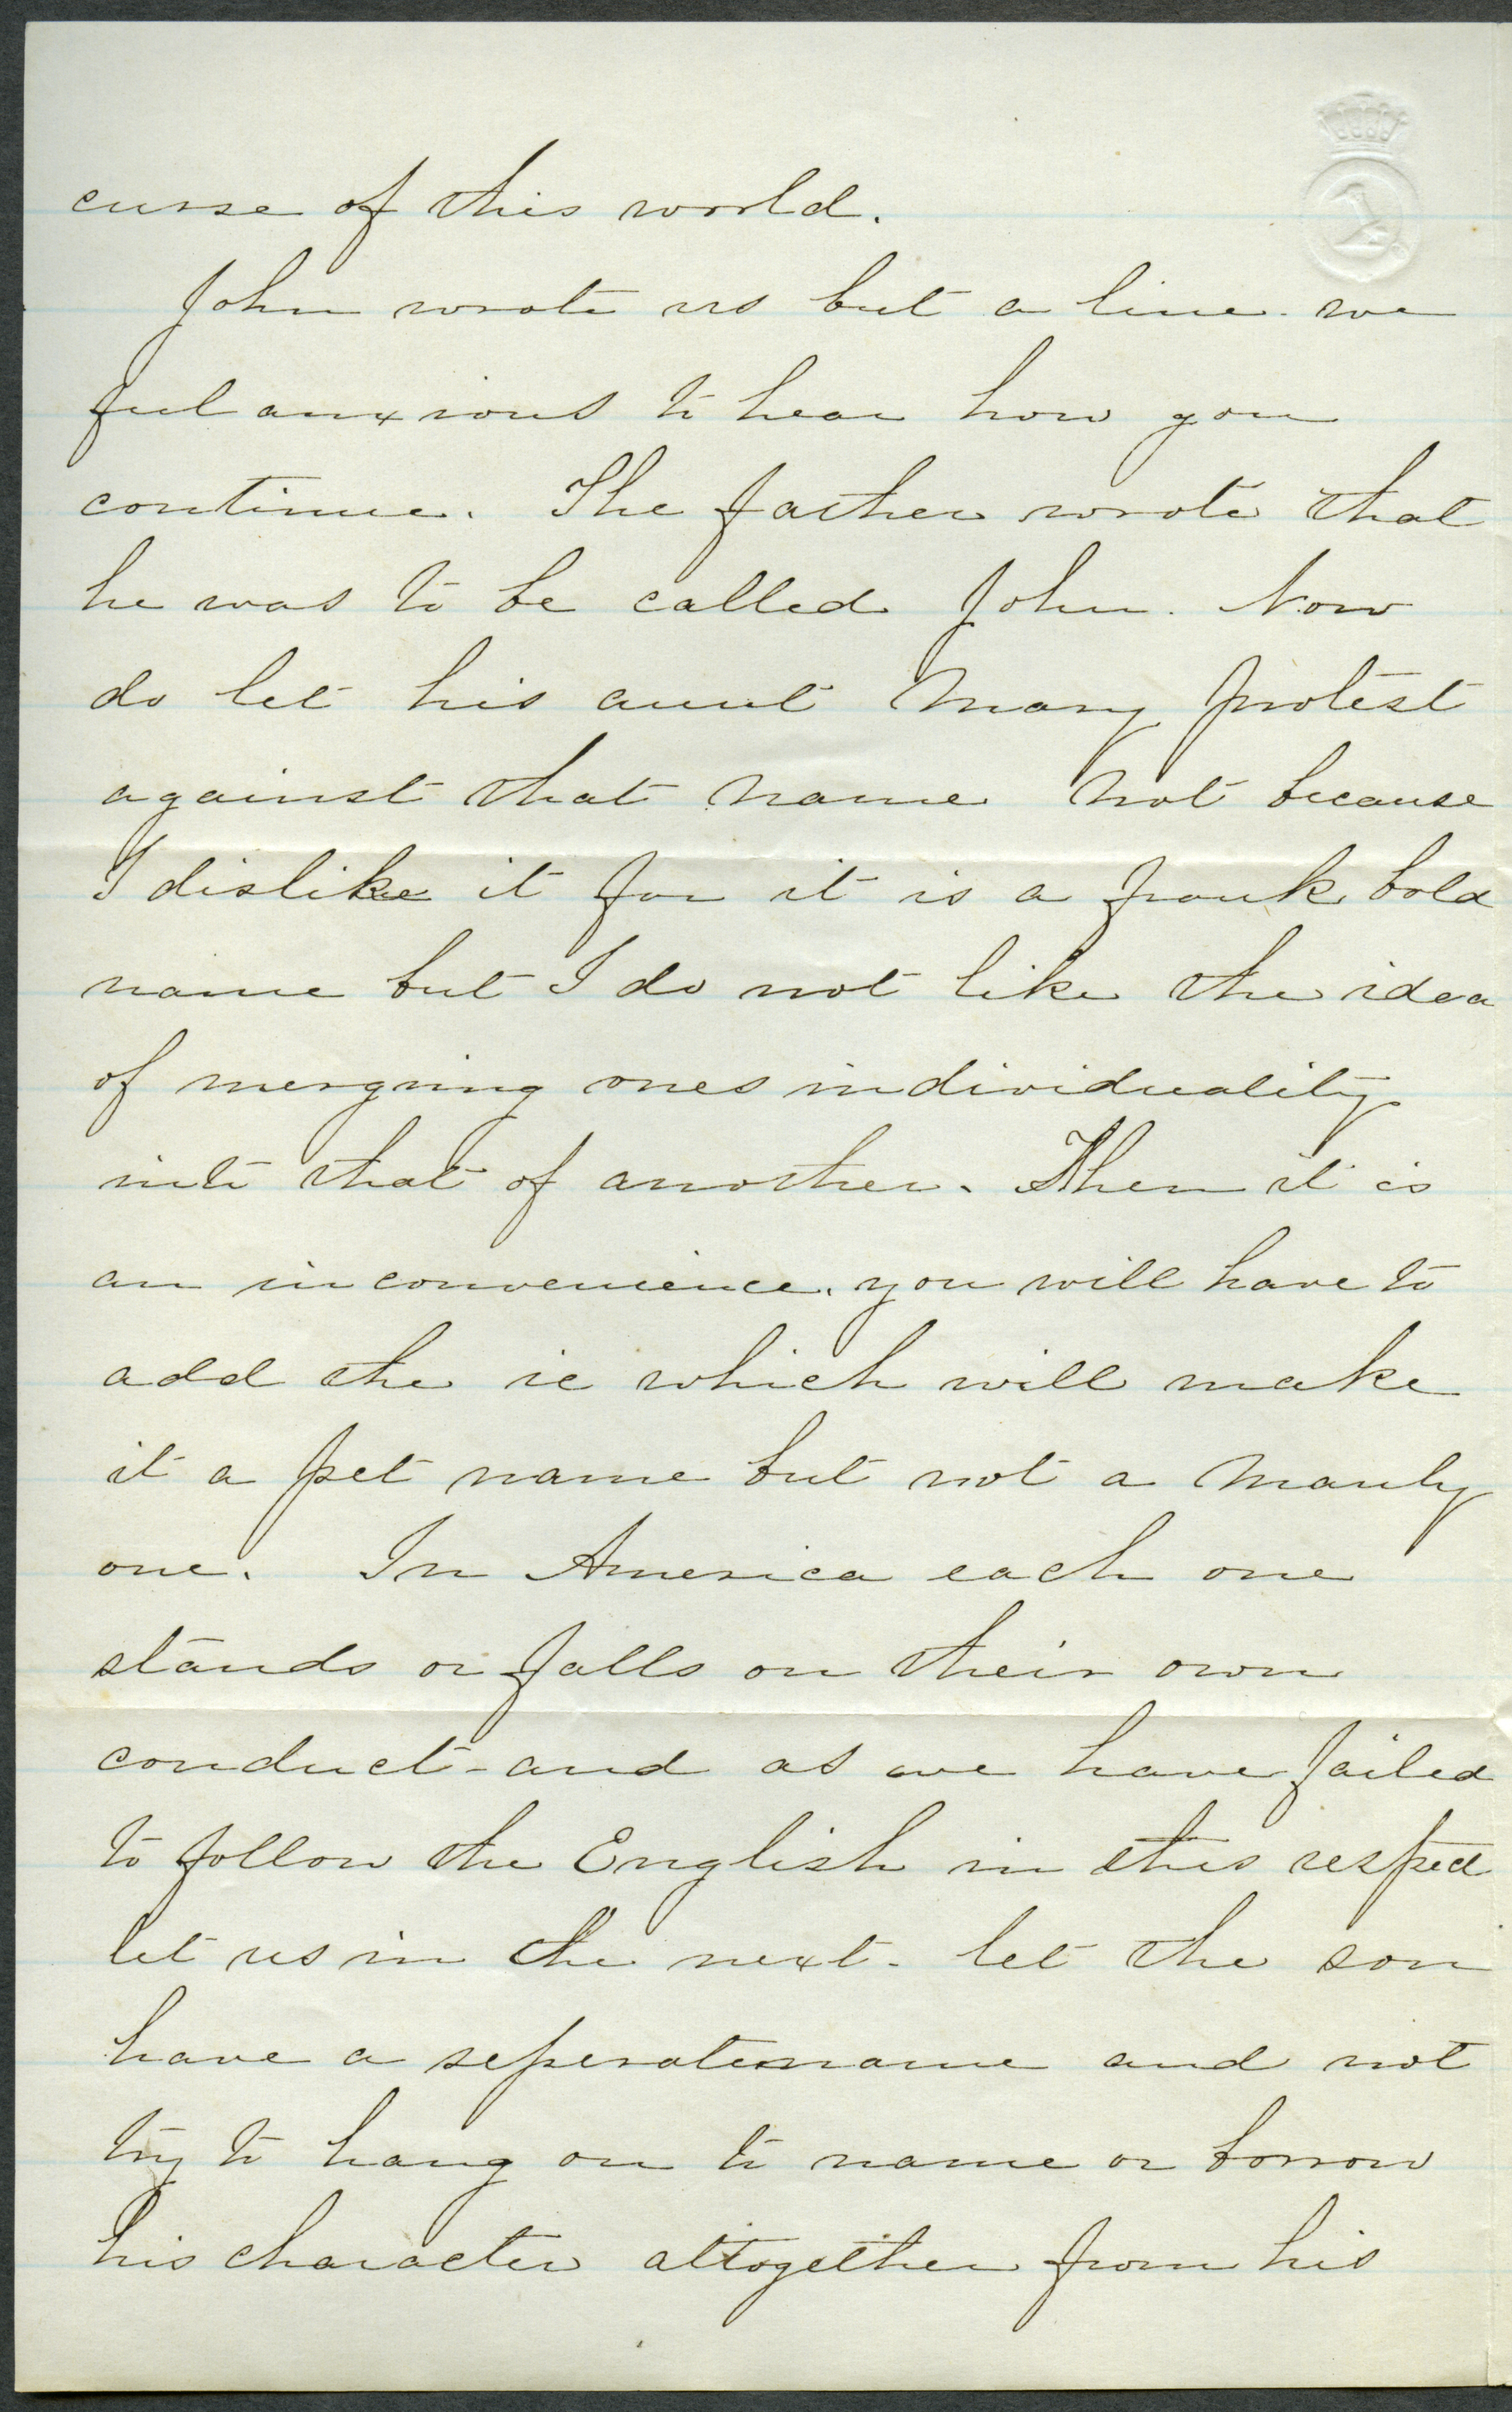 curse of this world.
John wrote us but a line. we
feel anxious to hear how you
continue. The father wrote that
he was to be called John. Now
do let his aunt Mary protest
against that name not because
I dislike it for it is a frank bold
name but I do not like the idea
of mergring ones individuality
into that of another. Then it is
an inconvenience. you will have to
add the ie which will make
it a pet name but not a manly
one. In America each one
stands or falls on their own
conduct - and as we have failed
to follow the English in this respect
let us in the next - let the son
have a seperate name and not
try to hang on to name or borrow
his character altogether from his